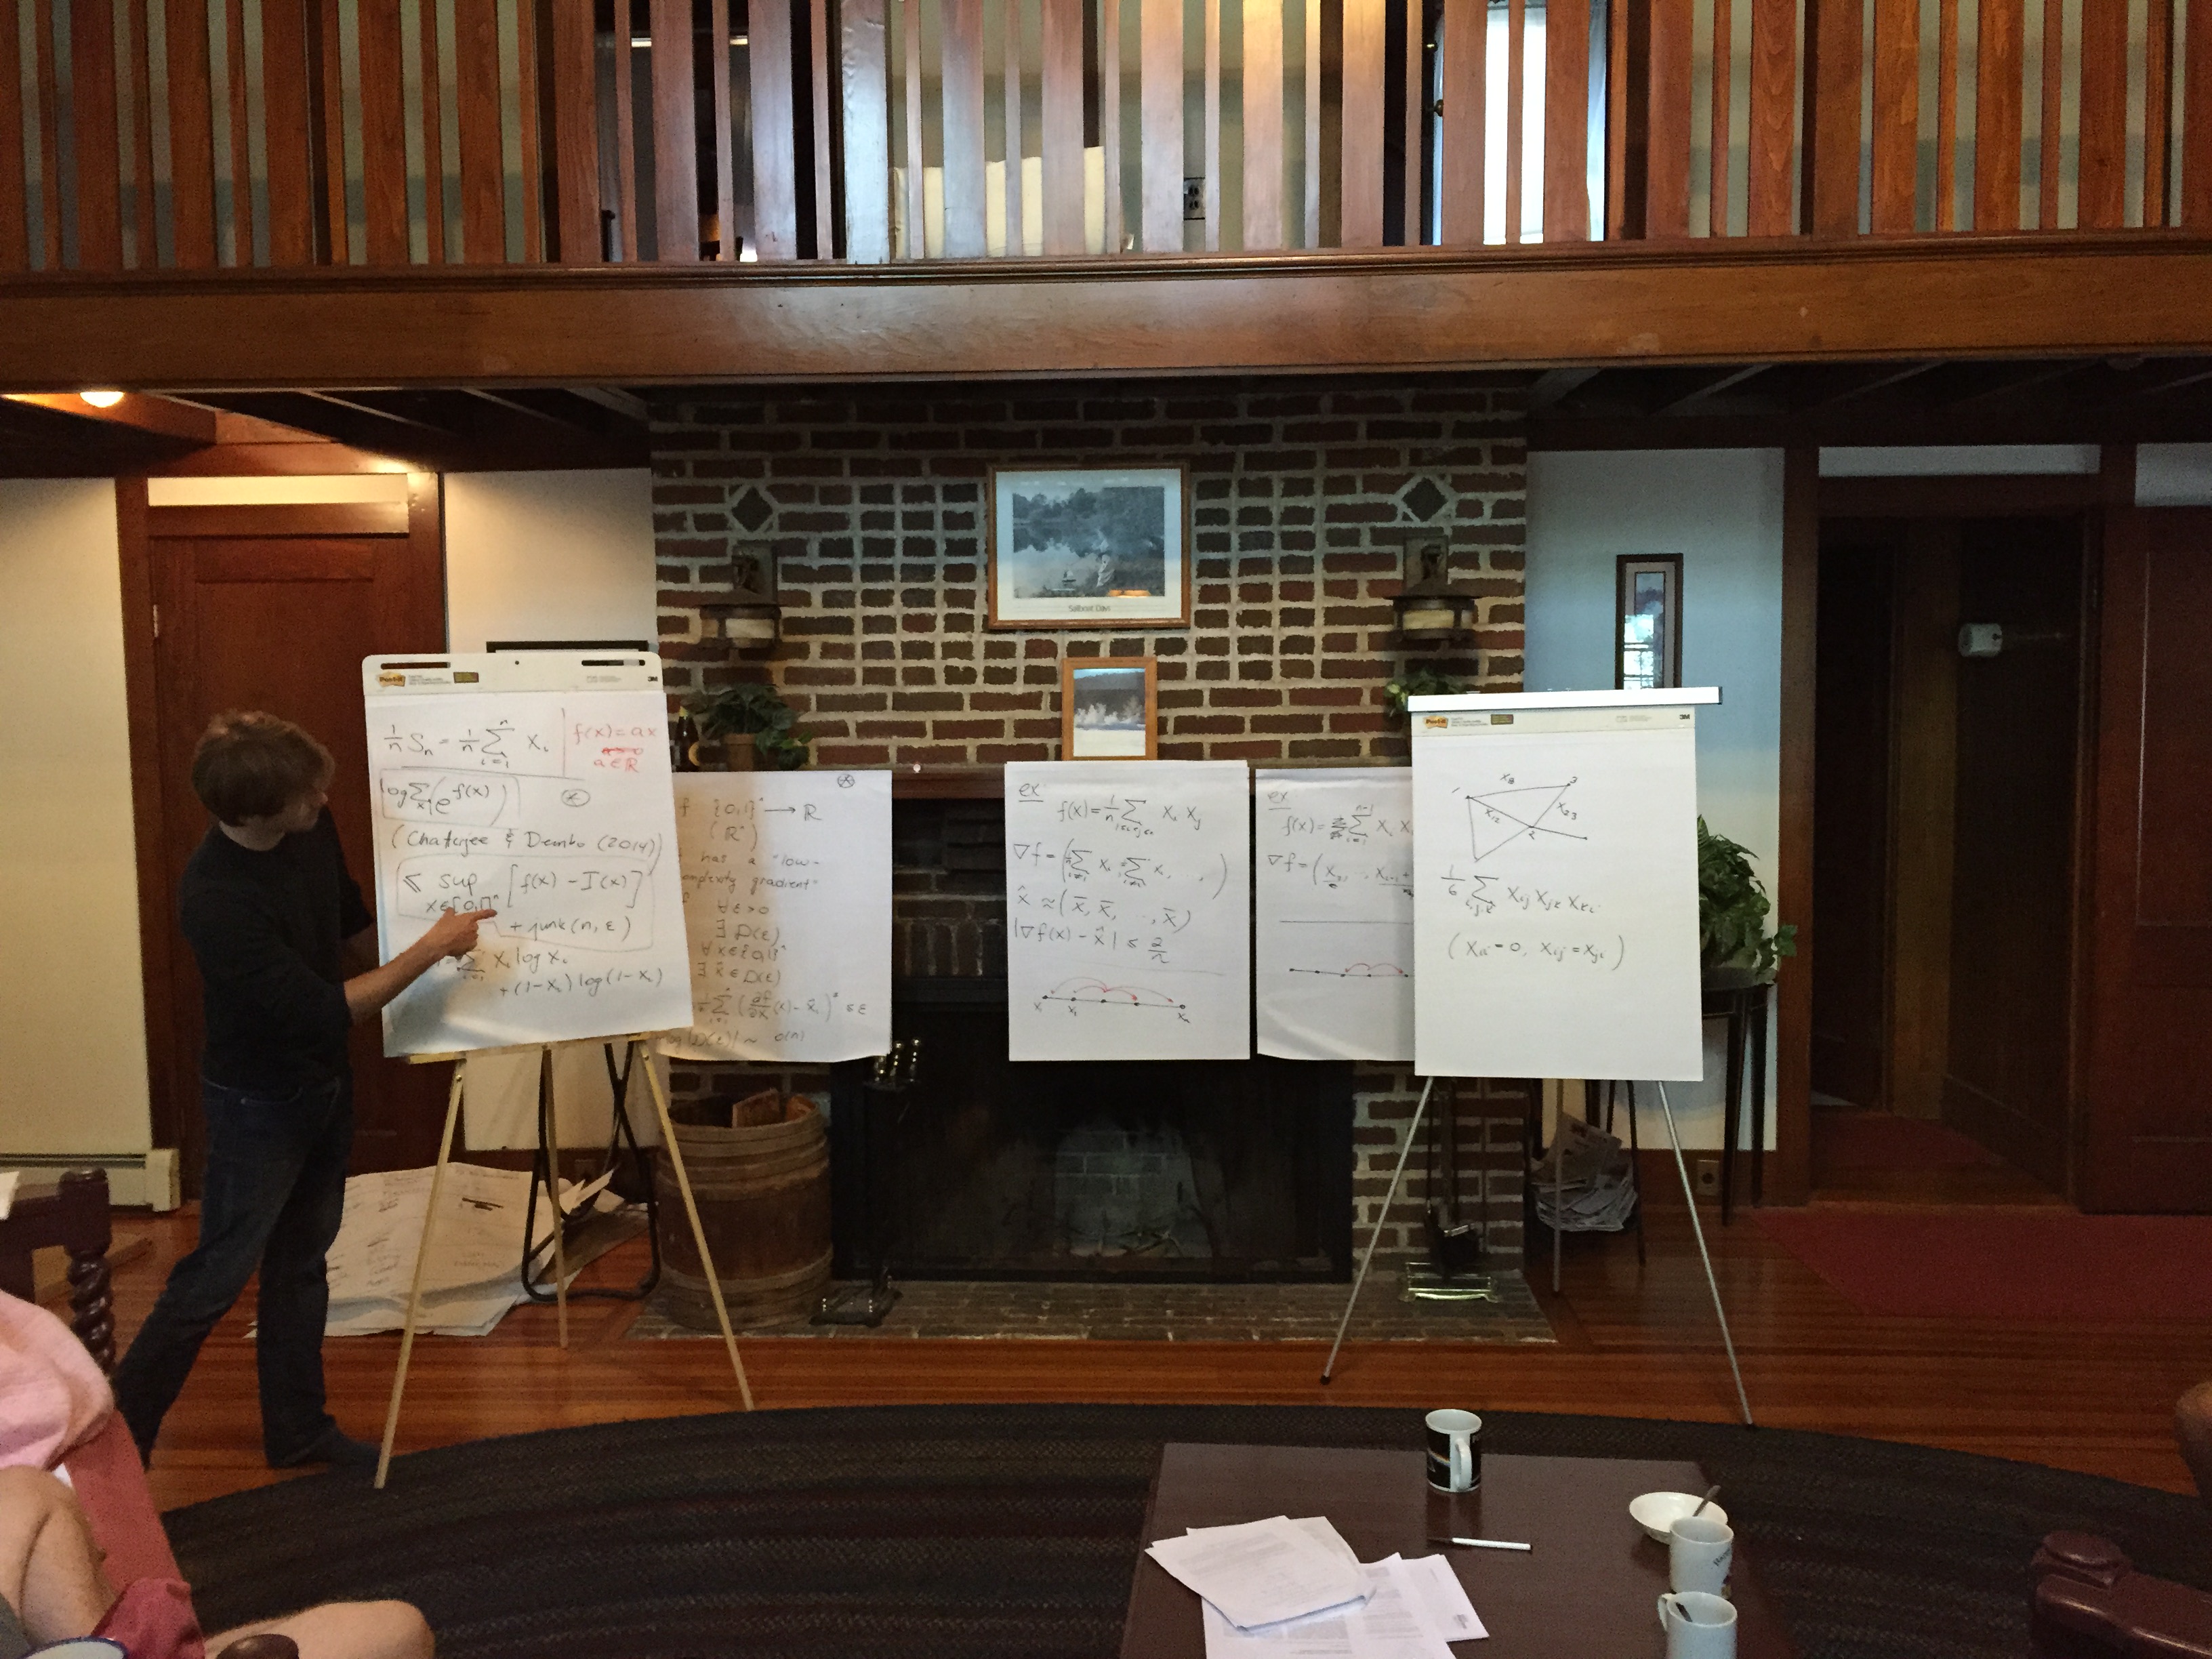 Post-it
3M
1/n Sₙ = 1/n ∑_{i=1}^{n} Xᵢ
f(x) = ax
a ∈ ℝ
log ∑ₓ (e^{f(x)}) ⊛
(Chatarjee & Dembo (2014)
≤ sup_{x∈[0,1]ⁿ} [f(x) - I(x)]
+ junk(n, ε)
∑ Xᵢ log Xᵢ
+ (1-Xᵢ) log (1-Xᵢ)
⊛
f {0,1}ⁿ → ℝ
(ℝⁿ)
has a "low-
mplexity gradient"
∀ ε > 0
∃ D(ε)
∀ x ∈ {0,1}ⁿ
∃ x̂ ∈ D(ε)
∑_{i=1}^{n} (∂f/∂xᵢ(x) - x̂ᵢ)² ≤ ε
og |D(ε)| ~ o(n)
Sailboat Days
ex
f(x) = 1/n ∑ Xᵢ Xⱼ
∇f =
x̂ ≈ (x̄, x̄, ..., x̄)
|∇f(x) - x̂| ≤ 2/n
Xₙ
ex
f(x) = ∑_{i=1}^{n-1} Xᵢ X
∇f = (
Post-it
3M
1
3
X₁₂
X₂₃
2
1/6 ∑_{i,j,k} Xᵢⱼ Xⱼₖ Xₖᵢ
(Xᵢᵢ = 0, Xᵢⱼ = Xⱼᵢ)